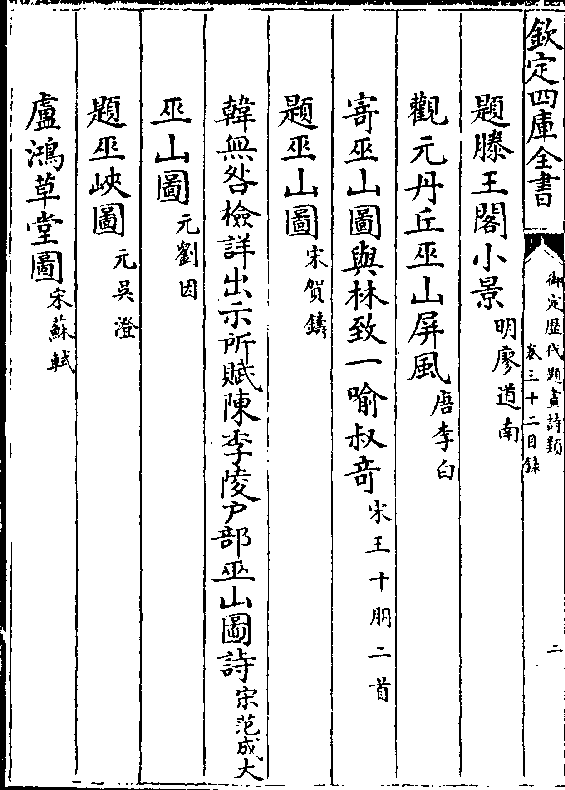 欽定四庫全書
御定歴代題畫詩類
卷三十二目錄
二
題滕王閣小景 明廖道南
觀元丹丘巫山屏風 唐李白
寄巫山圖與林致一喻叔奇 宋王十朋二首
題巫山圖 宋賀鑄
韓無咎檢詳出示所賦陳季陵戸部巫山圖詩 宋范成大
巫山圖 元劉因
題巫峽圖 元吳澄
盧鴻草堂圖 宋蘇軾